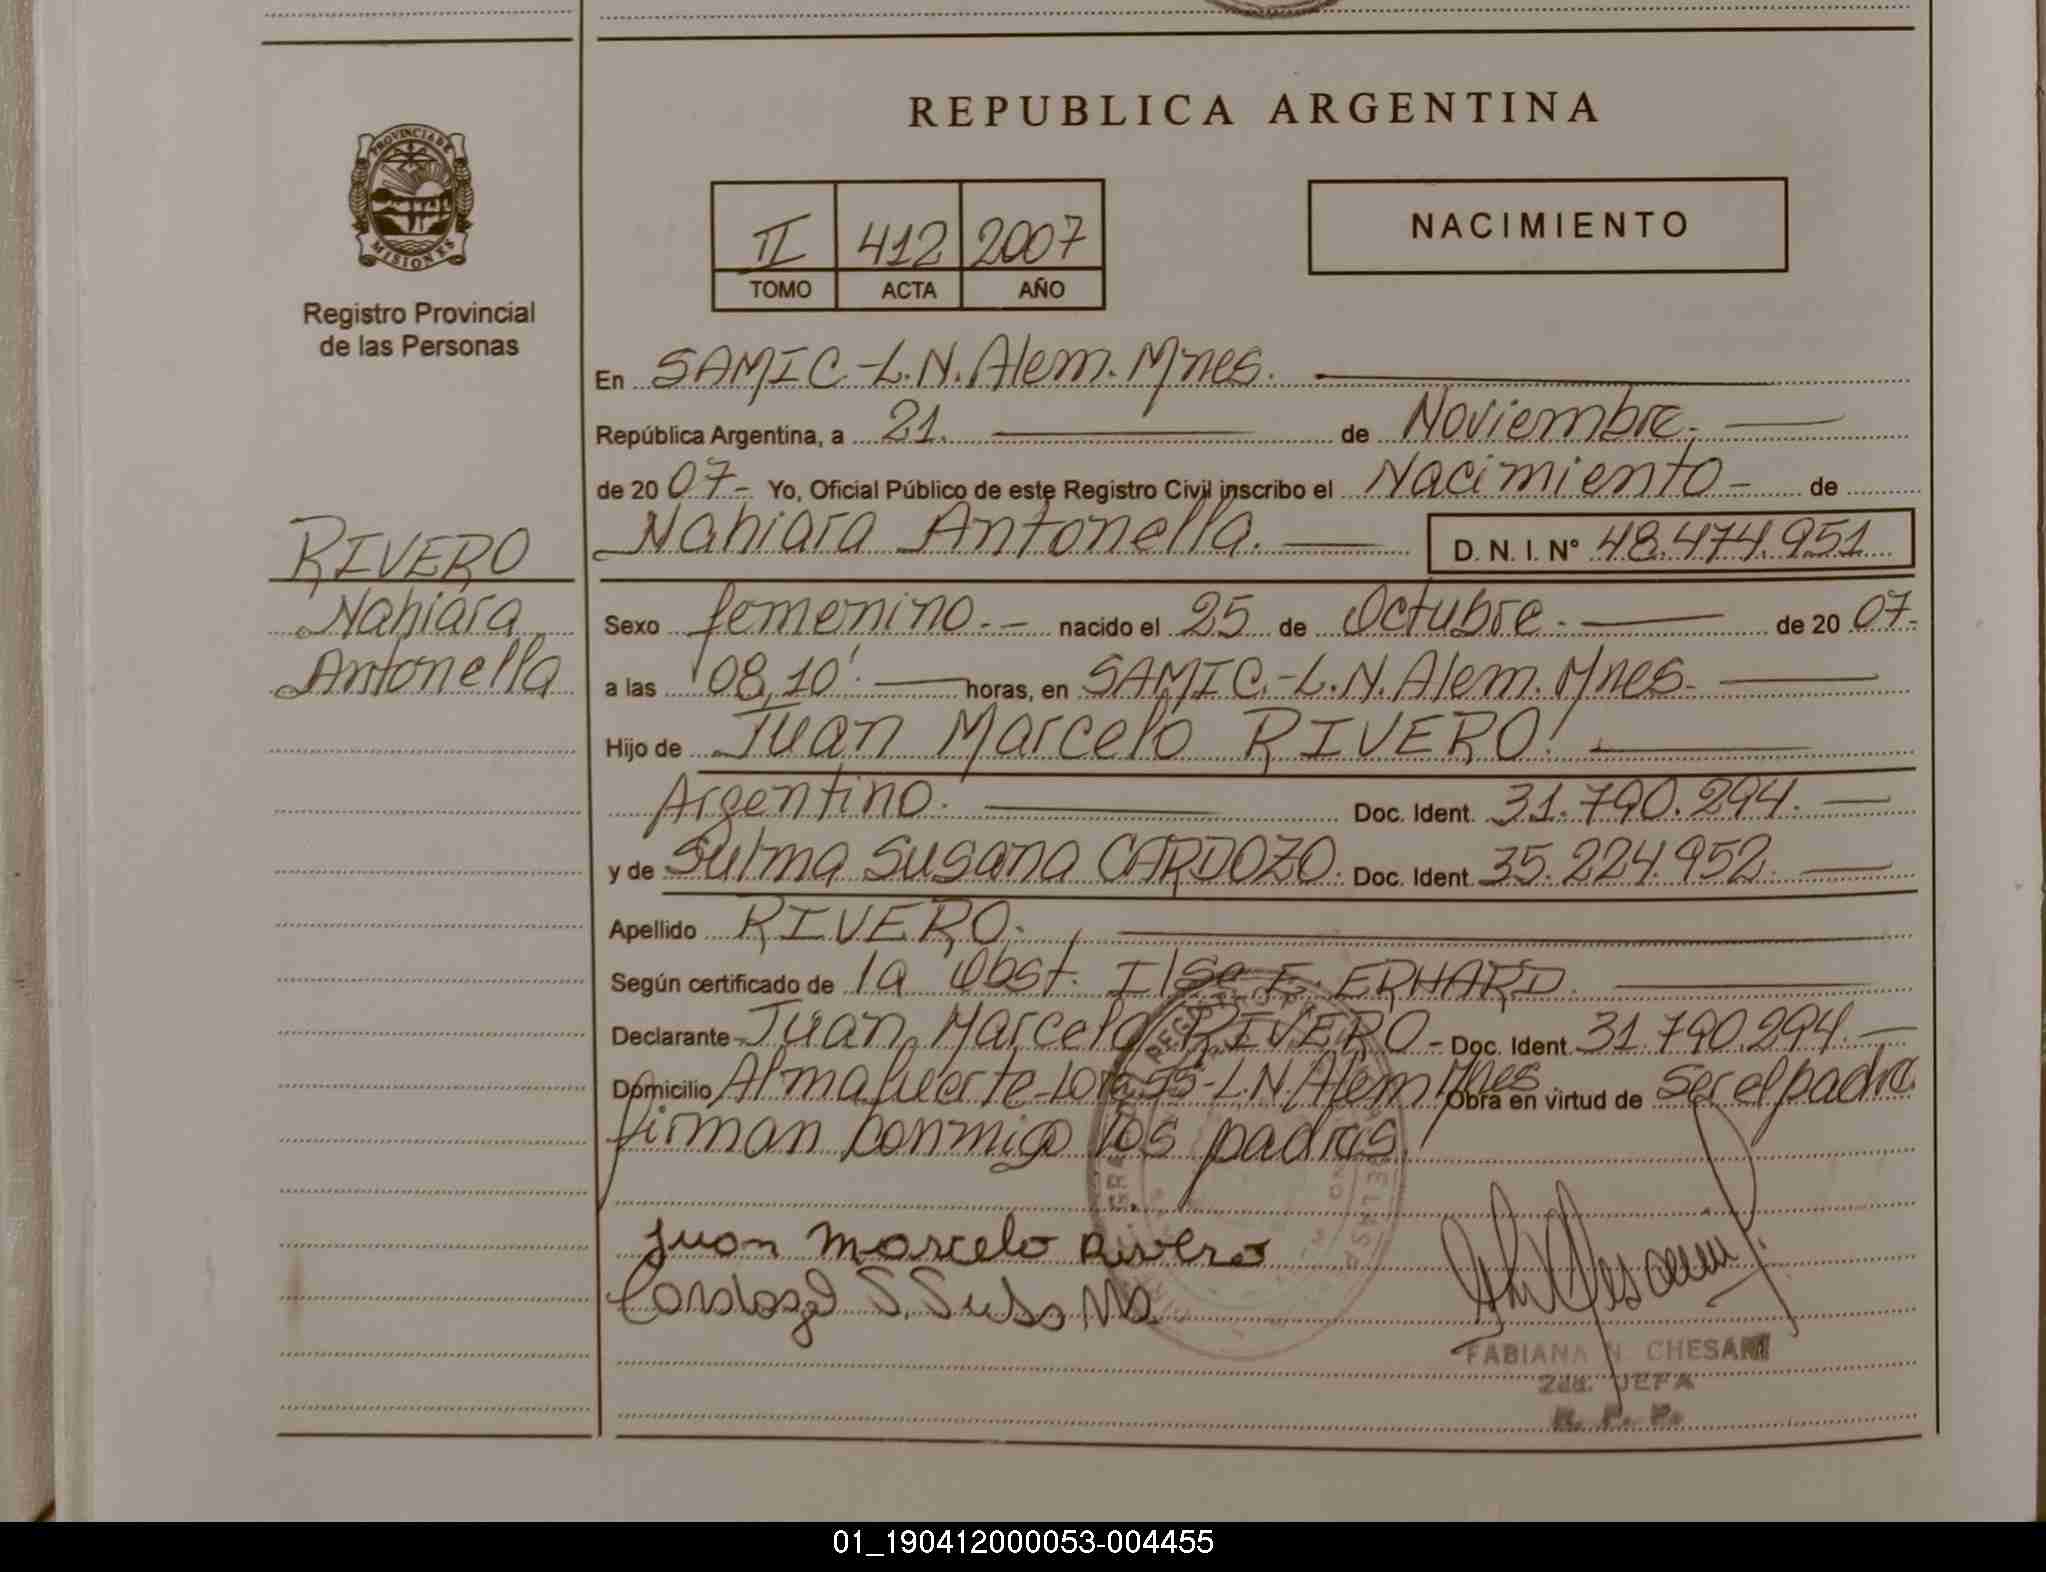 REPUBLICA ARGENTINA
PROVINCIA DE
MISIONES
Registro Provincial
de las Personas
II 412 2007
TOMO ACTA AÑO
NACIMIENTO
En SAMIC-L.N.Alem.Mnes.
República Argentina, a 21. de Noviembre.
de 20 07- Yo, Oficial Público de este Registro Civil inscribo el Nacimiento - de
Nahiara Antonella. D. N. I. N° 48.474.951
RIVERO
Nahiara
Antonella
Sexo femenino.- nacido el 25 de Octubre. de 20 07-
a las 08,10'. horas, en SAMIC.-L.N.Alem.Mnes-
Hijo de Juan Marcelo RIVERO.
Argentino. Doc. Ident. 31.790.294.
y de Sulma Susana CARDOZO. Doc. Ident. 35.224.952.
Apellido RIVERO.
Según certificado de la Obst. Ilse E. ERHARD.
Declarante Juan Marcelo RIVERO - Doc. Ident. 31.790.294.
Domicilio Almafuerte-Lote 55-L.N.Alem Mnes. Obra en virtud de ser el padre.
firman conmigo los padres.
Juan Marcelo Rivero
FABIANA N. CHESANI
2da. JEFA
R. P. P.
01_190412000053-004455